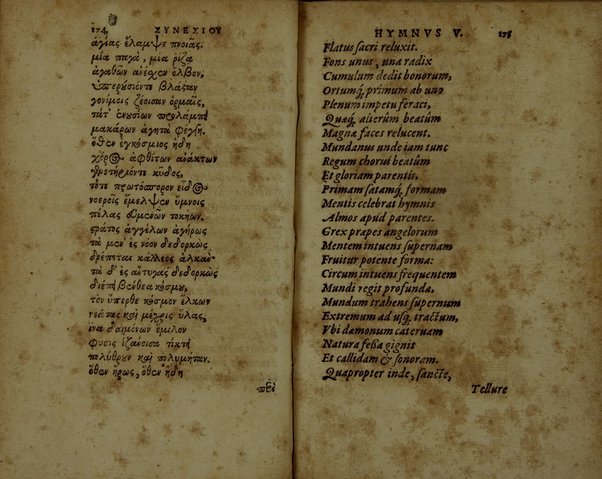 174 ΣΥΝΕΣΙΟΥ
ἁγίας ἔλαμψε πνοιᾶς.
μία παγὰ, μία ῥίζα
ἀγαθῶν ἀνέχεν ὄλβον,
ὑπερύσιόντε βλάσαν
γονίμοις ζέοισαν ὁρμαῖς,
μακάρων ἀγητὰ φέγγη.
ὅθεν ἐγκόσμιος ἤδη
χόρος ἀφθίτων ἀνάκτων
κῦδος,
τότε πρωτόσπορον εἶδος
νοεροῖς ἔμελψεν ὕμνοις
πέλας τοκήων.
στρατὸς ἀγγέλων ἀγήρως
τὰ μὲν ἐς νόον δεδορκὼς
δρέπεται κάλλεος ἀλκὰν·
τὰ δ' ἐς ἄντυγας δεδορκὼς
διέπει βένθεα κόσμου,
τὸν ὕπερθε κόσμον ἕλκων
νεάτας καὶ μέχρις ὕλας,
ἵνα δαιμόνων ὅμιλον
φύσις ἱζάνοισα τίκτει
πολύθρουν καὶ πολυμήταν.
ὅθεν ἥρως, ὅθεν ἤδη
περὶ
HYMNVS V. 175
Flatus sacri reluxit.
Fons unus, una radix
Cumulum dedit bonorum,
Ortumq́, primum ab uno
Plenum impetu feraci,
Quæq́, alterûm beatûm
Magnæ faces relucent.
Mundanus unde iam tunc
Regum chorus beatûm
Et gloriam parentis,
Primam satamq́, formam
Mentis celebrat hymnis
Almos apud parentes.
Grex præpes angelorum
Mentem intuens supernam
Fruitur potente forma:
Circum intuens frequentem
Mundi regit profunda,
Mundum trahens supernum
Extremum ad usq́, tractum,
Vbi dæmonum cateruam
Natura feßa gignit
Et callidam & sonoram.
Quapropter inde, sancte,
Tellure